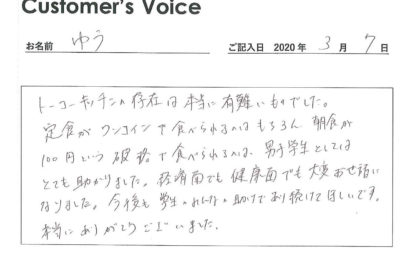 Customer's Voice
お名前 ゆう ご記入日 2020年 3月 7日
トーコーキッチンの存在は本当に有難いものでした。
定食がワンコインで食べられるのはもちろん、朝食が
100円という破格で食べられるのは、男子学生としては
とても助かりました。経済面でも健康面でも大変お世話に
なりました。今後も学生のみんなの助けであり続けてほしいです。
本当にありがとうございました。